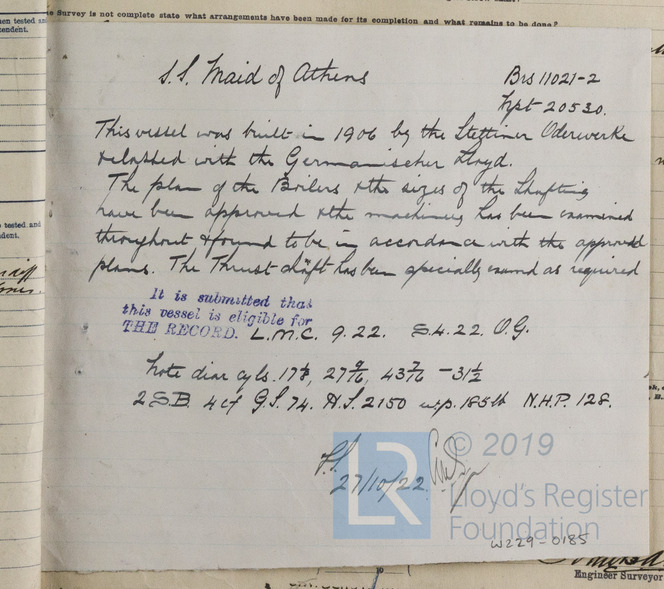 Survey is not complete state what arrangements have been made for its completion and what remains to be done?
S.S. Maid of Athens
Brs 11021-2
Rpt 20530.
This vessel was built in 1906 by the Stettiner Oderwerke
& classed with the Germanischer Lloyd.
The plan of the Boilers & the sizes of the Shafting
have been approved & the machinery has been examined
throughout & found to be in accordance with the approved
plans. The Thrust shaft has been specially examd as required
It is submitted that
this vessel is eligible for
THE RECORD. L.M.C. 9.22. S.4.22. O.G.
Note diar cyls. 17⅞, 27 9/16, 43 7/16 - 31½
2 S.B. 4cf G.S. 74. H.S. 2150 w.p. 185lb N.H.P. 128.
27/10/22
© 2019
LR
Lloyd's Register
Foundation
W229-0185
Engineer Surveyor